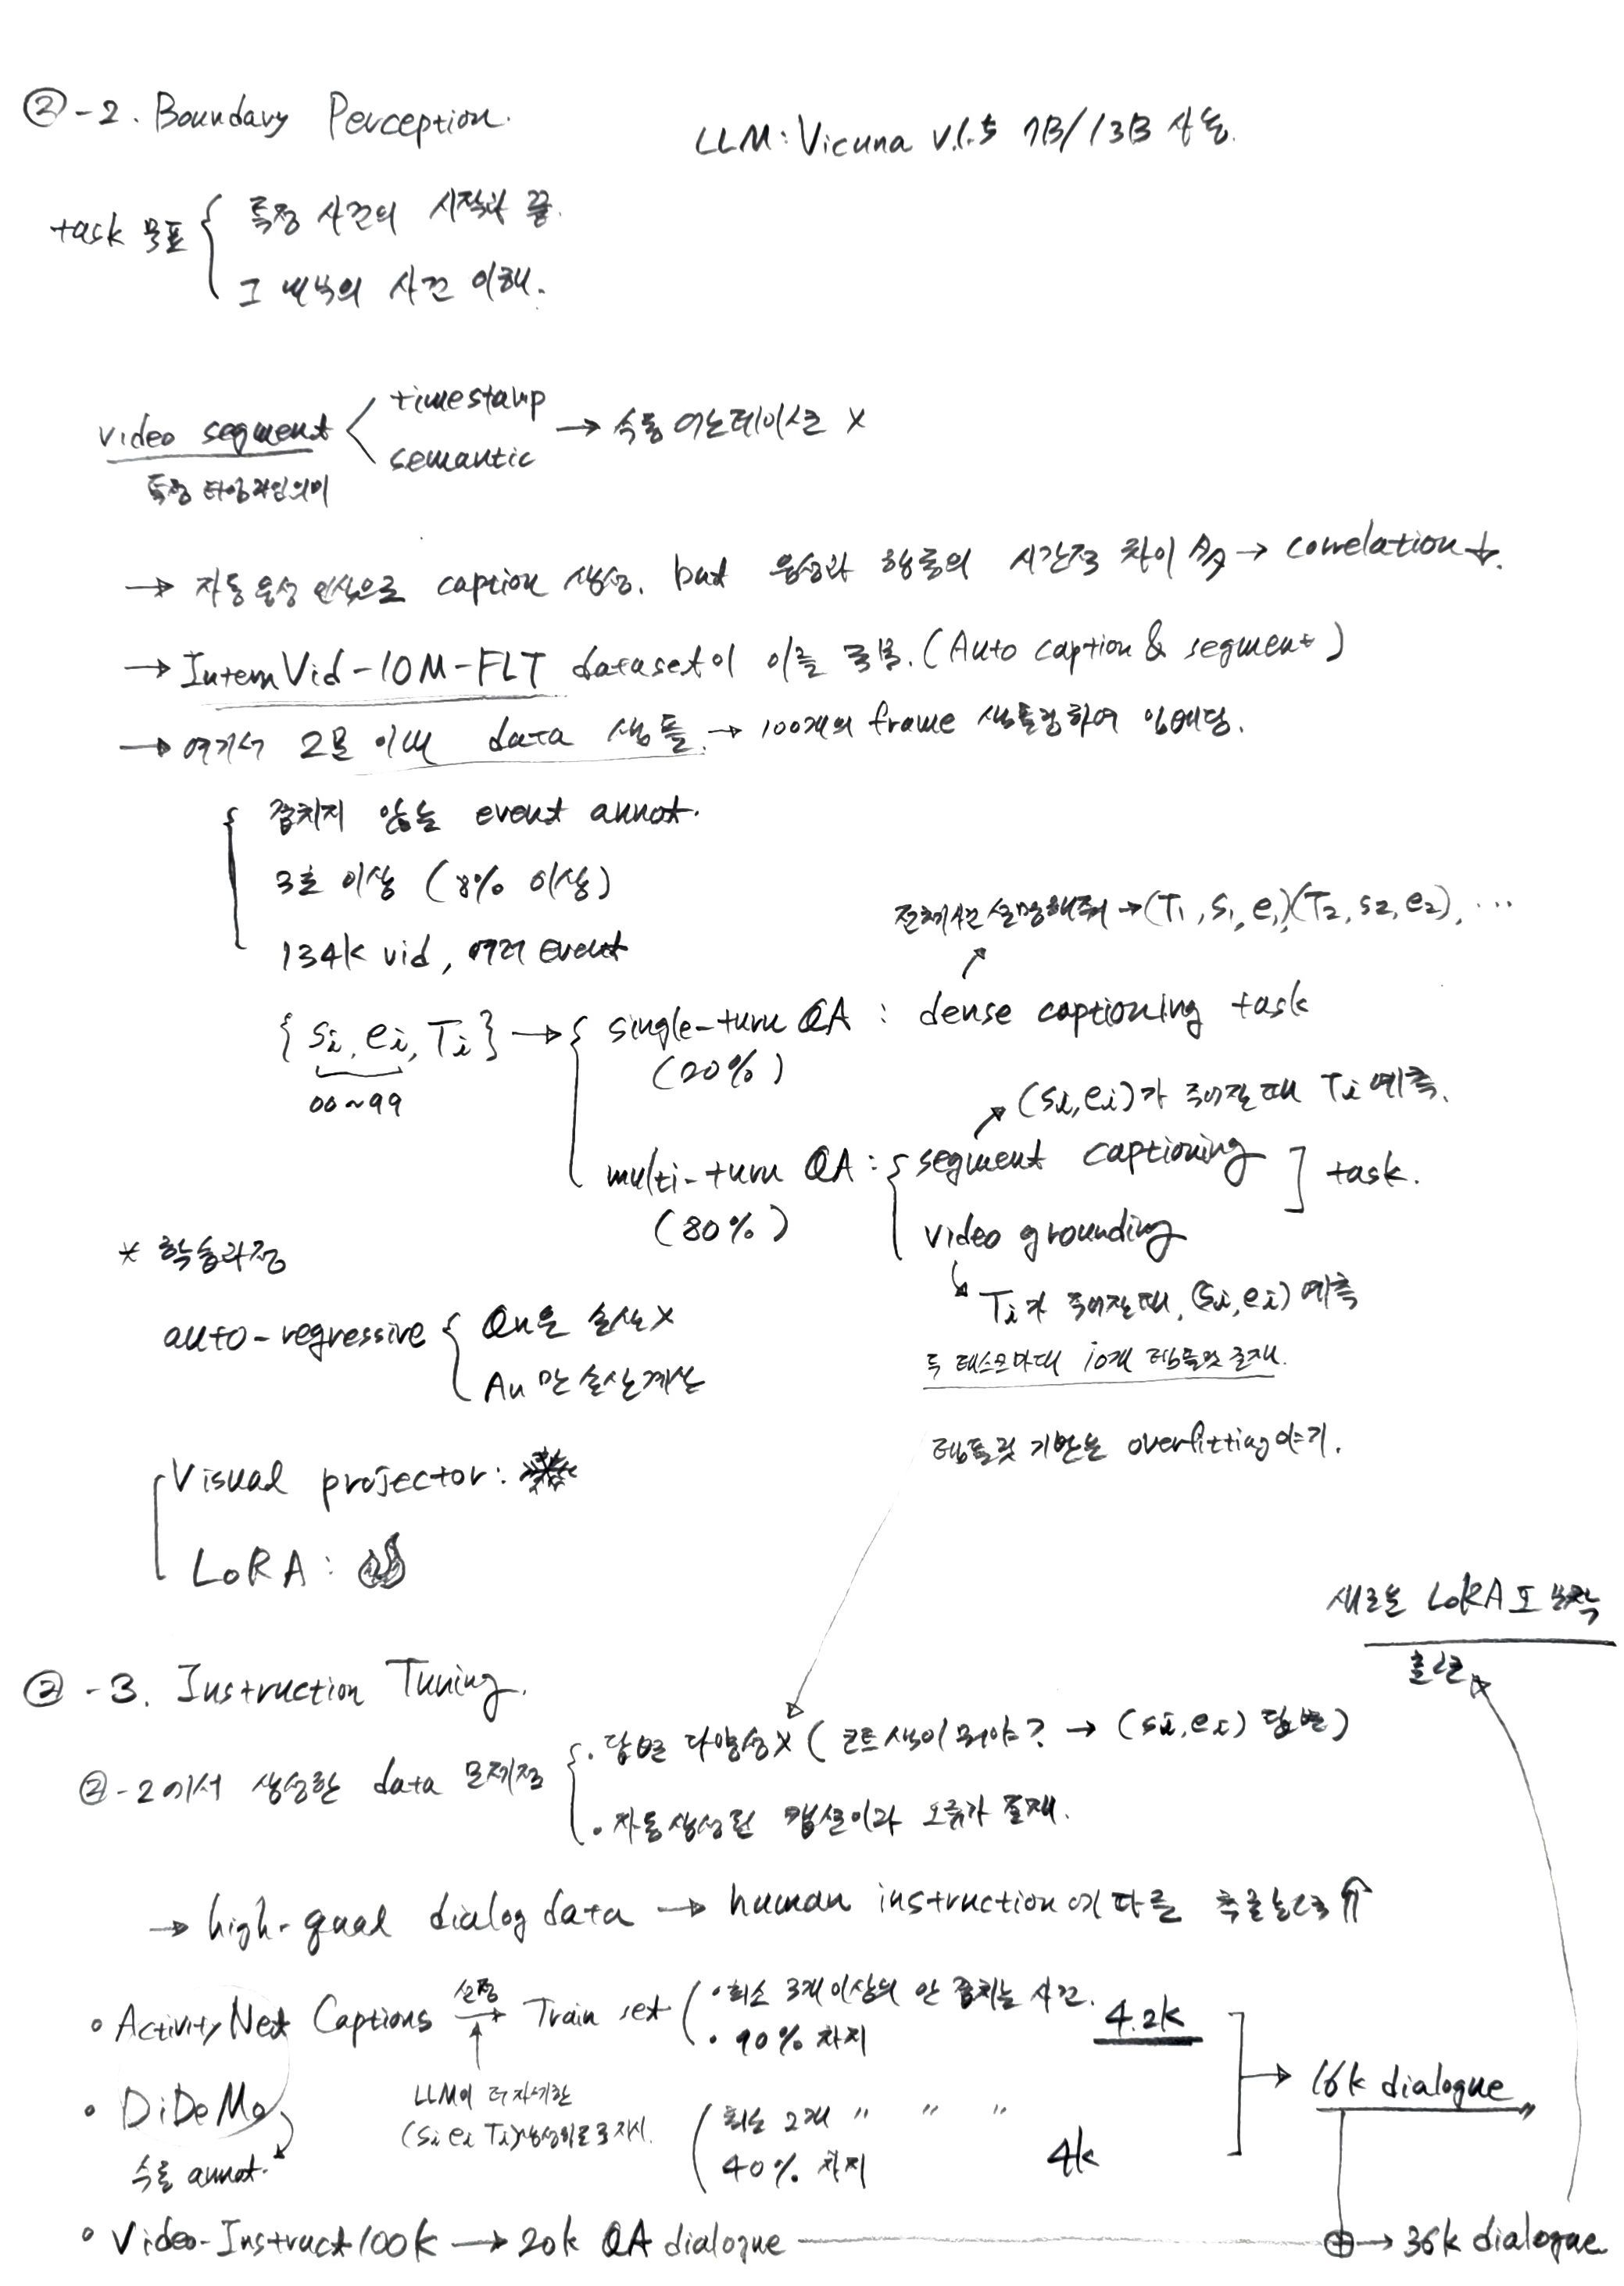 ②-2. Boundary Perception.
LLM: Vicuna v.1.5 7B/13B 사용.
task 목표 { 특정 사건의 시작과 끝.
그 내부의 사건 이해.
video segment < timestamp
semantic → 수동 어노테이션 X
특정 타임라인의미
→ 자동 음성 인식으로 caption 생성. but 음성과 행동의 시간적 차이 多 → correlation ↓.
→ InternVid-10M-FLT dataset이 이를 극복. (Auto caption & segment)
→ 여기서 2분 이내 data 샘플. → 100개의 frame 샘플링하여 임베딩.
{ 겹치지 않는 event annot.
3초 이상 (8% 이상)
134k vid, 여러 event
전체사건 설명해줘 → (T1, s1, e1), (T2, s2, e2), ...
{ si, ei, Ti } → { single-turn QA : dense captioning task
(20%)
00~99
(si, ei)가 주어질 때 Ti 예측.
multi-turn QA : { segment captioning ] task.
(80%)
video grounding
Ti가 주어질 때, (si, ei) 예측
두 태스크마다 10개 템플릿 존재.
템플릿 기반은 overfitting 야기.
* 학습과정
auto-regressive { Qn은 손실 X
An 만 손실 계산
Visual projector :
LoRA :
새로운 LoRA도 부착
훈련
②-3. Instruction Tuning.
②-2에서 생성한 data 문제점 { • 답변 다양성 X ( 코트 색이 뭐야? → (si, ei) 답변 )
• 자동생성된 캡션이라 오류가 존재.
→ high-qual dialog data → human instruction에 따른 추론능력 ⇑
• ActivityNet Captions 선정 → Train set ( • 최소 3개 이상의 안 겹치는 사건. 4.2k
• 90% 차지
→ 16k dialogue
• DiDeMo
LLM에 더 자세한
(si ei Ti) 생성하도록 지시.
( 최소 2개 〃 〃 〃
40% 차지 4k
수동 annot.
• Video-Instruct100k → 20k QA dialogue ⊕ → 36k dialogue